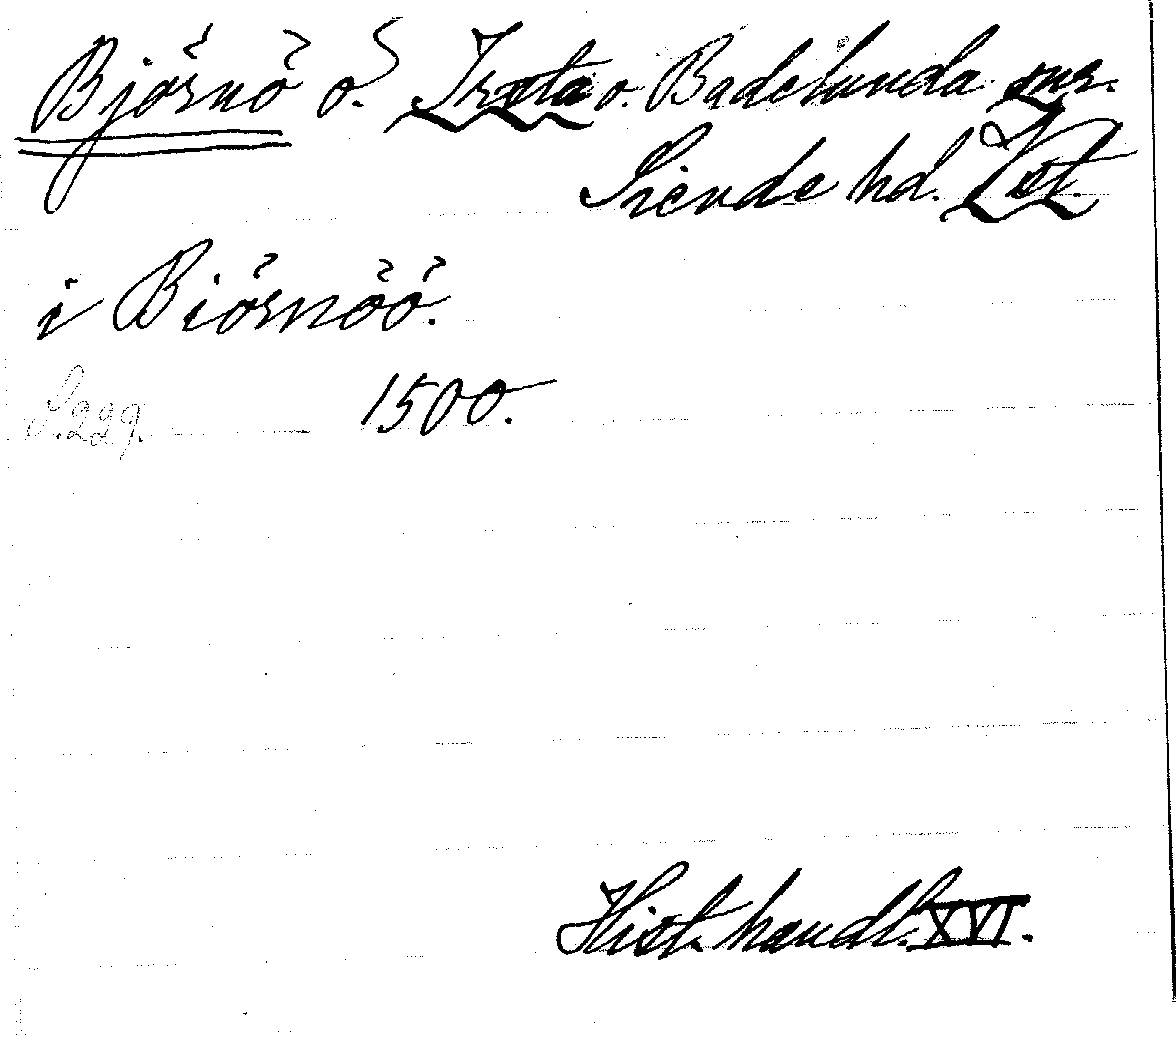 Björnö o. Irsta o. Badelunda snr.
Siende hd. Vst.
i Biörnöö.
S. 229. 1500.
Hist. handl. XVI.